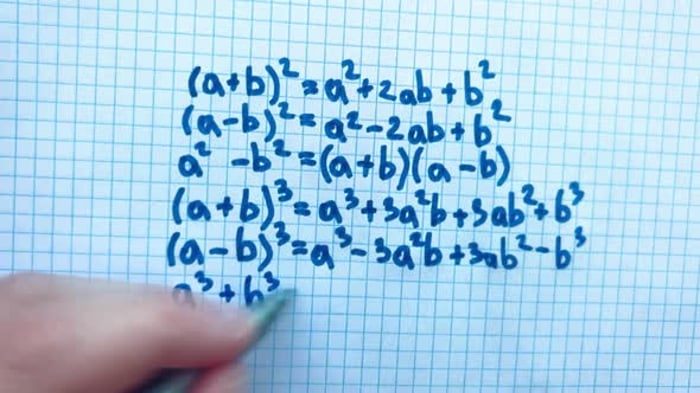 (a+b)² = a² + 2ab + b²
(a-b)² = a² - 2ab + b²
a² - b² = (a+b)(a-b)
(a+b)³ = a³ + 3a²b + 3ab² + b³
(a-b)³ = a³ - 3a²b + 3ab² - b³
a³ + b³